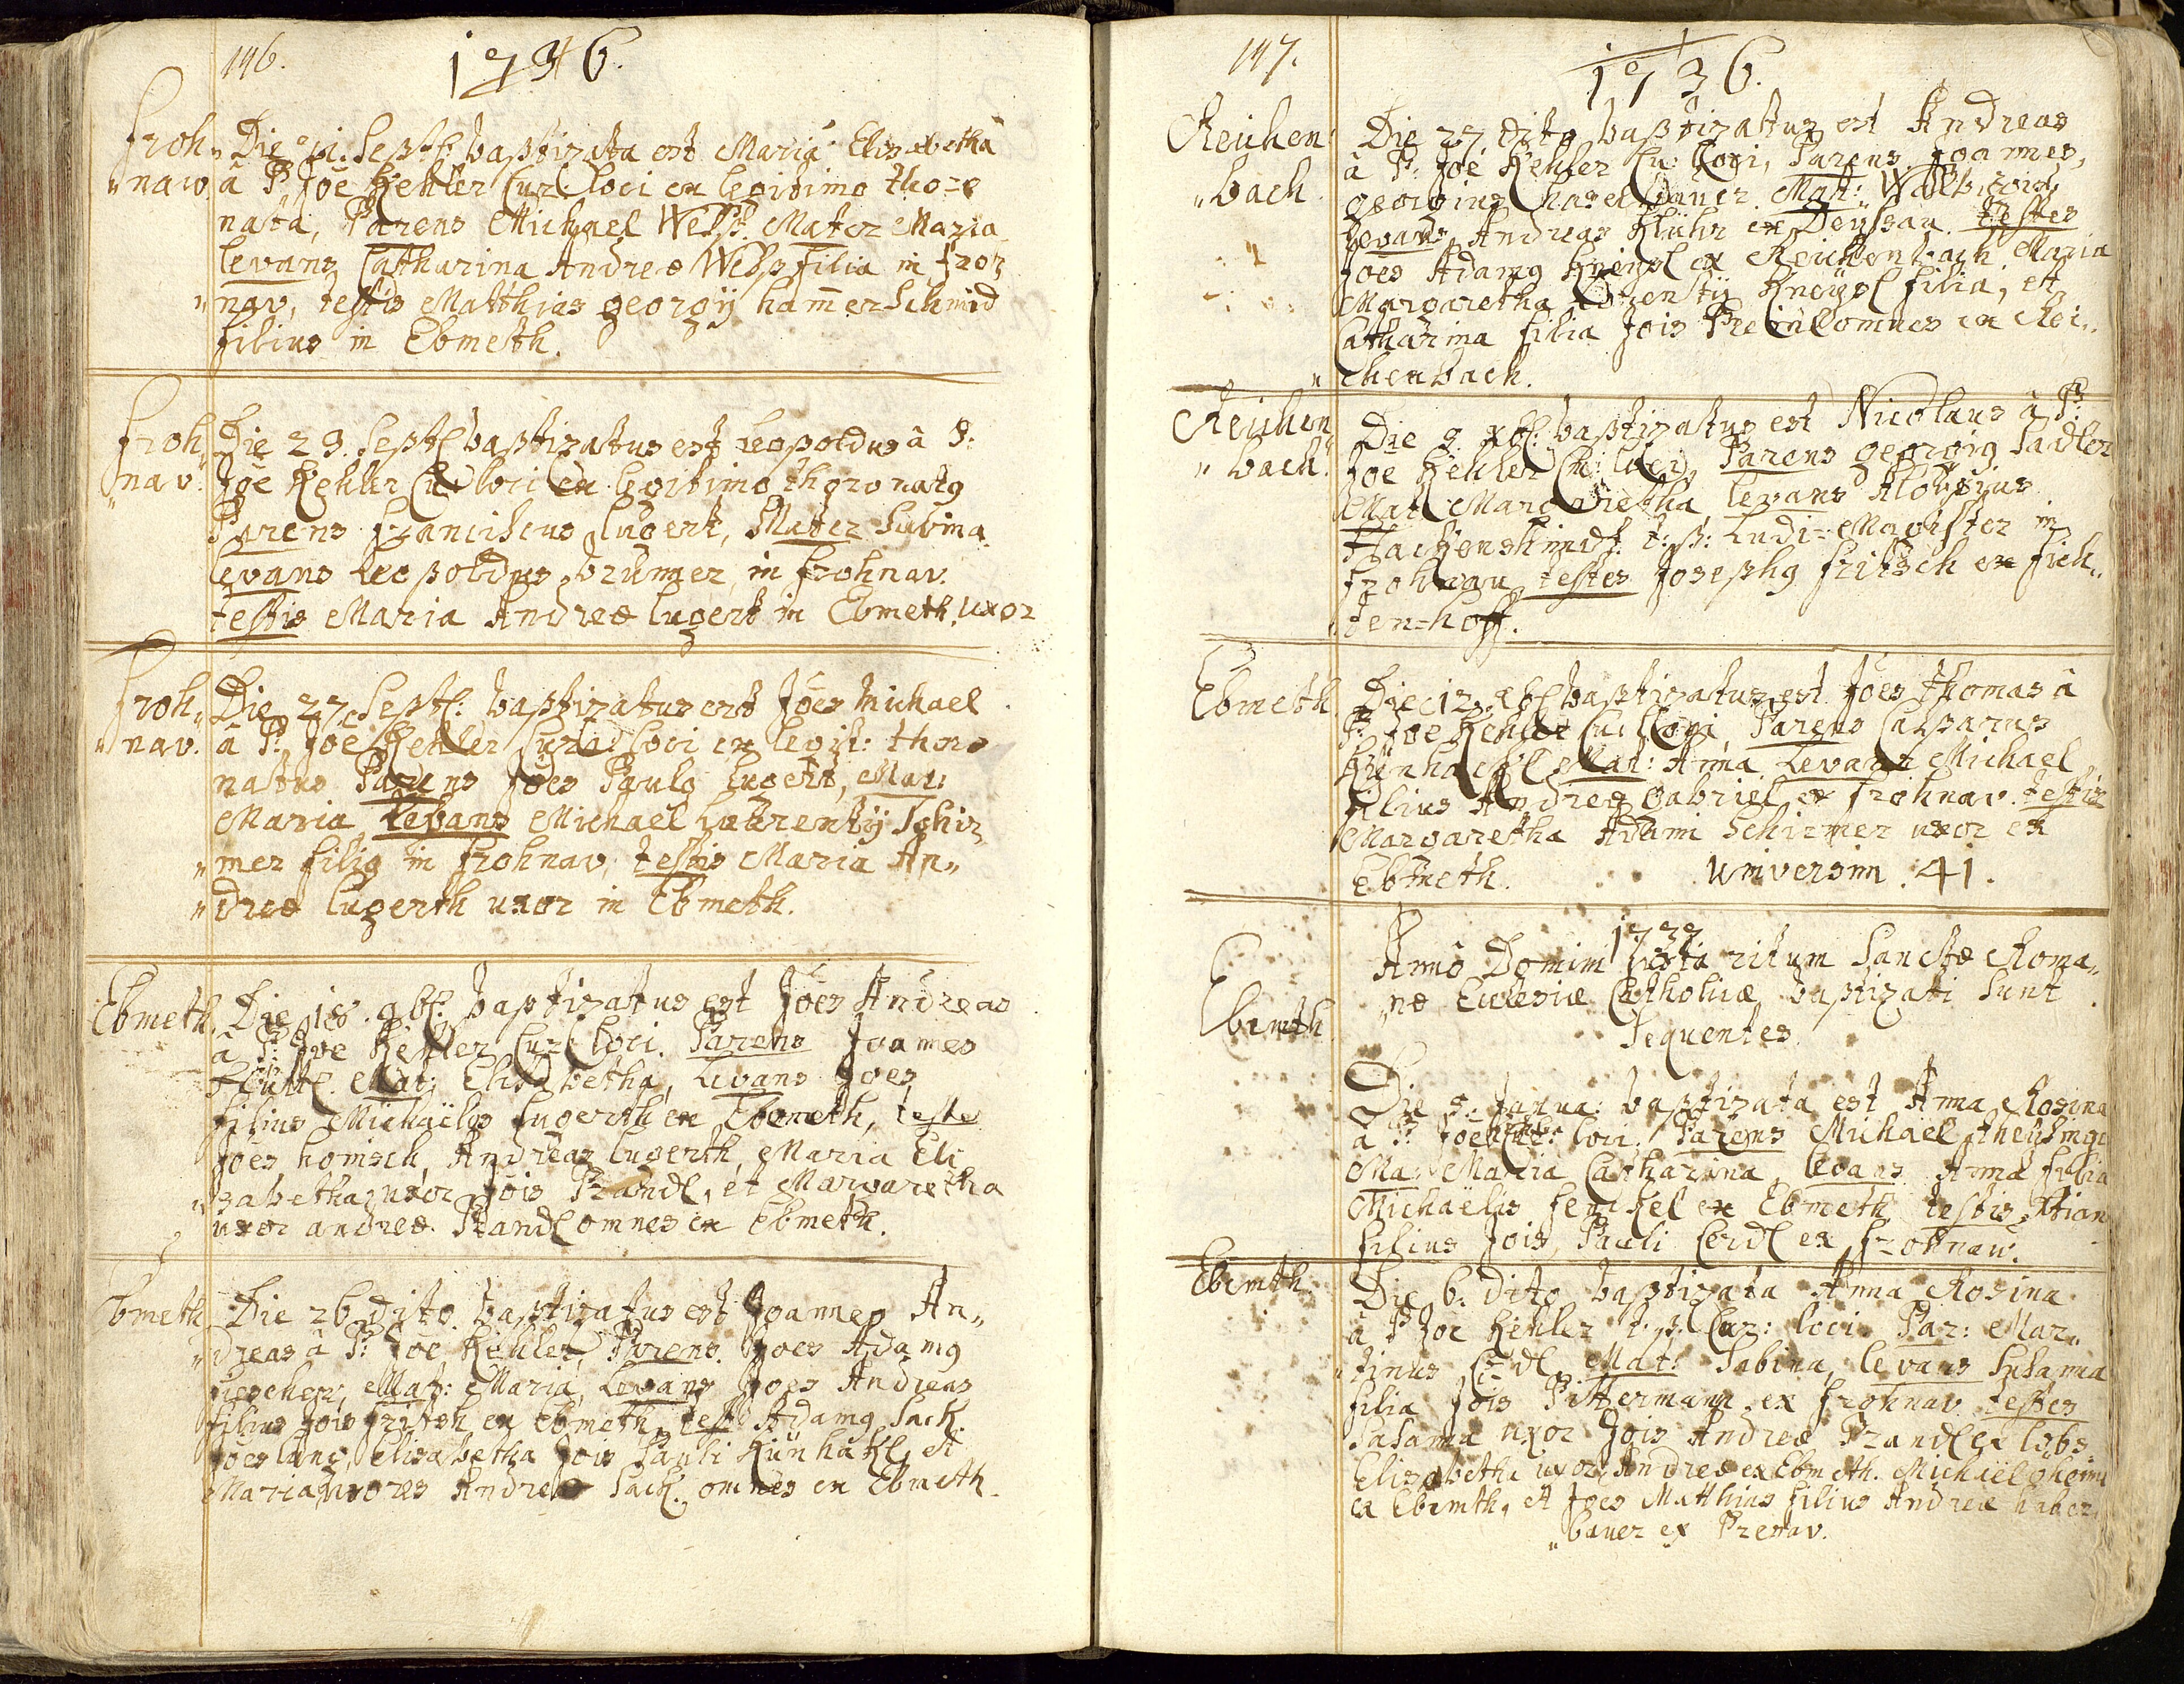 146.
1736.
Froh„
„naw.
Die Septb baptizata est Maria Elisabetha
à P. Joe Kehler Cur: loci ex legitimo tho=
nata, Parens Michael Mater Maria
levans Catharina Andreæ filia in Fro
„nav, testis Matthias georgij ham̄erschmid
filius in Ebmeth.
Froh„
„nav.
Die 23. Septb baptizatus est Leopoldus à P:
Joe Kehler Cur loci ex legitimo thoro natg
Parens Franciscus lugert, Mater Sabina
levans Leopoldus in Frohnav.
testis Maria Andreæ lugert in Ebmeth, uxor
Froh„
„nav.
Die 27. Septb: baptizatus est Joes Michael
à P. Joe Kehler Cur loci ex legit: thoro
natus Parens Joes Paulg lugert, Mat:
Maria Levans Michael Laurentij Schir„
„mer filig in Frohnav, testis Maria An„
„dreæ lugerth uxor in Ebmeth.
Ebmeth.
Die 18. 9b: baptizatus est Joes Andreas
à P: Joe Kehler Cur loci. Parens Joannes
Mat: Elisabetha, Levans Joes
filius Michaëlis lugerth ex Ebmeth, testes
Joes homsch, Andreas lugerth, Maria Eli
„sabetha uxor Jois Prandl, et Margaretha
uxor andreæ Prandl omnes ex Ebmeth.
Ebmeth
Die 26 dito baptizatus est Joannes An„
„dreas à P: Joe Kehler, Parens Joes Adamg
Mat: Maria, Levans Joes Andreas
filius Jois Fritsch ex Ebmeth, test: Adamg Sack.
Joes lang, Elisabetha Jois Pauli Künhakl, et
Maria uxores Andreæ Sack. omnes ex Ebmeth.
147.
1736.
Reichen
„bach.
Die 27. dito baptizatus est Andreas
à P: Joe Kehler Cu: loci, Parens Joannes,
georgius Mat: Walburgis
levans Andreas ex testes
Joes Adamg ex Reichenbach. Maria
Margaretha Laurentij filia, et
Catharina filia Jois omnes ex Rei„
„chenbach.
Reichen
„bach.
Die 9. xb: baptizatus est Nicolaus à P:
Joe Kehler Cu: loci, Parens georgig Sadler
Mat Margaretha, levans Aloysius
t: p: Ludi=Magister in
Frohnau testes Josephg Fritsch ex Fich„
„ten=hoff.
Ebmeth.
Die 12. xb baptizatus est Joes Thomas à
P. Joe Kehler Cu loci, Parens Casparus
Künhackl Mat: Anna Levans Michael
filius Andreæ gabriel ex Frohnav. testis
Margaretha Adami Schirmer uxor ex
Ebmeth. Universim. 41.
1737
Anno Domini iuxta ritum Sanctæ Roma„
„næ Ecclesiæ Catholicæ baptizati sunt
Sequentes.
Ebemth
Die 5. Janua: baptizata est Anna Rosina
à P. Joe Kehler Cur: loci, Parens Michael
Mat Maria Catharina, levans Anna filia
Michaëlis ex Ebmeth testis
filius Jois Pauli ex Frohnaw.
Ebemth.
Die 6. dito baptizata Anna Rosina
à P Joe Kehler t. p. Cur: loci Par: Mar„
„tinus Mat: Sabina, levans Susanna
filia Jois Pittermann ex Frohnav testes
Susanna uxor Jois Andreæ Prandl ex
Elisabetha uxor Andreæ ex Ebmeth. Michaël
ex Ebemth, et Joes Matthias filius Andreæ haber„
„bauer ex